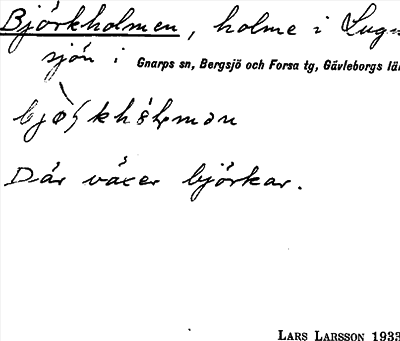 Björkholmen, holme i Lugn
sjön i Gnarps sn, Bergsjö och Forsa tg, Gävleborgs lä
Där växer björkar.
LARS LARSSON 1933